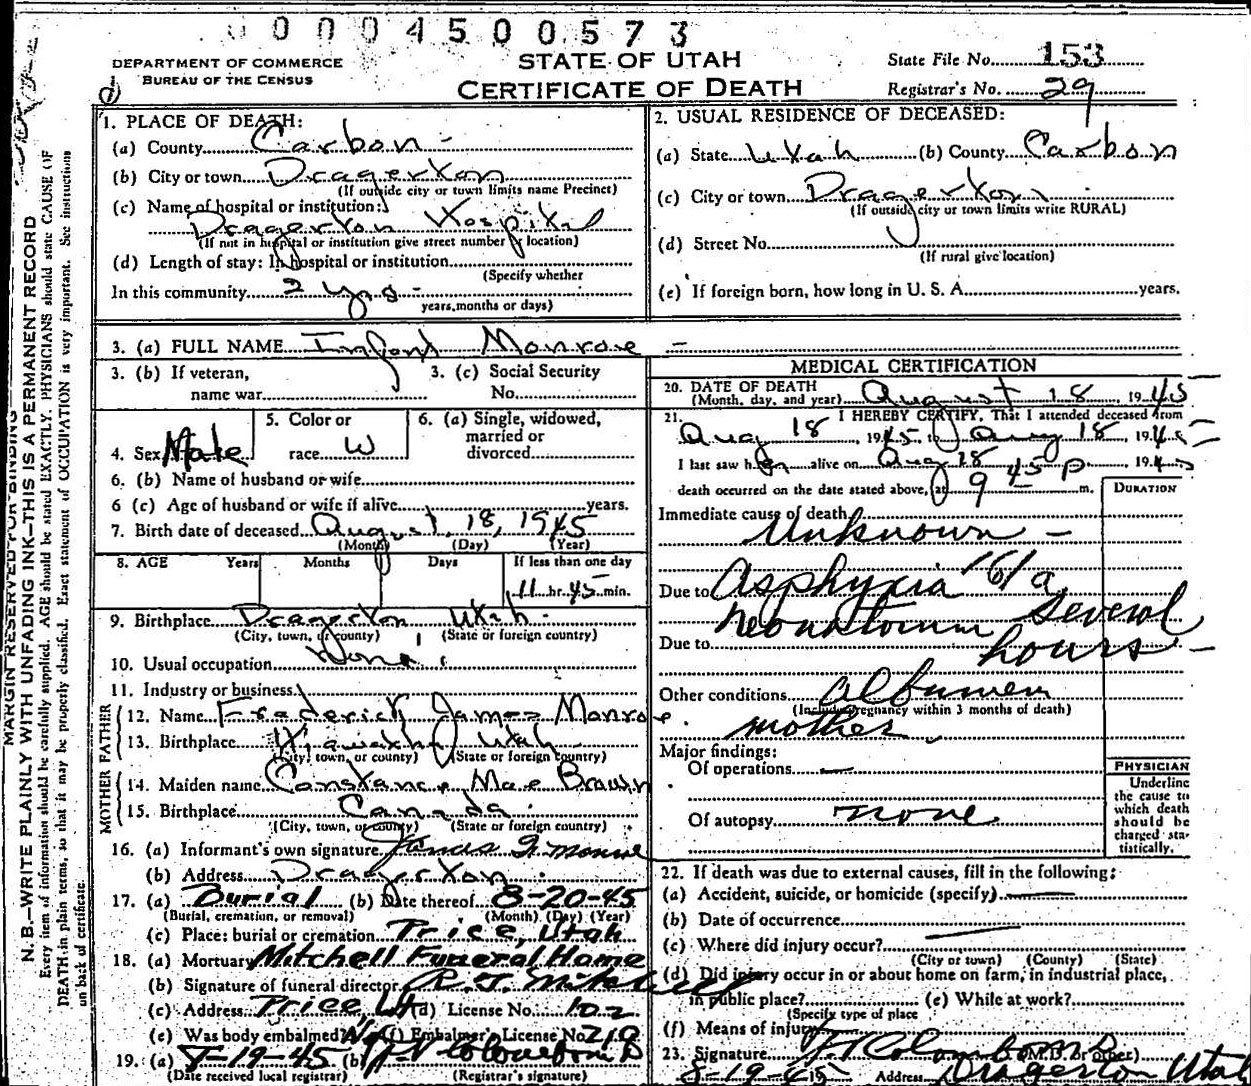 0004500573
DEPARTMENT OF COMMERCE
BUREAU OF THE CENSUS
STATE OF UTAH
CERTIFICATE OF DEATH
State File No. 153
Registrar's No. 29
MARGIN RESERVED FOR BINDING
N. B.—WRITE PLAINLY WITH UNFADING INK—THIS IS A PERMANENT RECORD
Every item of information should be carefully supplied. AGE should be stated EXACTLY. PHYSICIANS should state CAUSE OF
DEATH in plain terms, so that it may be properly classified. Exact statement of OCCUPATION is very important. See instructions
on back of certificate.
1. PLACE OF DEATH:
(a) County Carbon
(b) City or town Dragerton
(If outside city or town limits name Precinct)
(c) Name of hospital or institution:
Dragerton Hospital
(If not in hospital or institution give street number or location)
(d) Length of stay: In hospital or institution
(Specify whether
In this community 2 yrs
years, months or days)
2. USUAL RESIDENCE OF DECEASED:
(a) State Utah (b) County Carbon
(c) City or town Dragerton
(If outside city or town limits write RURAL)
(d) Street No.
(If rural give location)
(e) If foreign born, how long in U. S. A. years.
3. (a) FULL NAME Infant Monroe
3. (b) If veteran,
name war
3. (c) Social Security
No.
4. Sex Male
5. Color or
race W
6. (a) Single, widowed,
married or
divorced
6. (b) Name of husband or wife
6 (c) Age of husband or wife if alive years.
7. Birth date of deceased August 18, 1945
(Month) (Day) (Year)
8. AGE Years Months Days If less than one day
11 hr. 45 min.
9. Birthplace Dragerton Utah
(City, town, or county) (State or foreign country)
10. Usual occupation None
11. Industry or business
FATHER
12. Name Frederick James Monroe
13. Birthplace Hiawatha Utah
(City, town, or county) (State or foreign country)
MOTHER
14. Maiden name Constance Mae Brown
15. Birthplace Canada
(City, town, or county) (State or foreign country)
16. (a) Informant's own signature Monroe
(b) Address Dragerton
17. (a) Burial (b) Date thereof 8-20-45
(Burial, cremation, or removal) (Month) (Day) (Year)
(c) Place: burial or cremation Price, Utah
18. (a) Mortuary Mitchell Funeral Home
(b) Signature of funeral director R. J. Mitchell
(c) Address Price Ut (d) License No. 102
(e) Was body embalmed No (f) Embalmer's License No. 210
19. (a) 8-19-45 (b)
(Date received local registrar) (Registrar's signature)
MEDICAL CERTIFICATION
20. DATE OF DEATH
(Month, day, and year) August 18 1945
21. I HEREBY CERTIFY, That I attended deceased from
Aug 18, 1945, to Aug 18, 1945
I last saw h alive on Aug 18 1945
death occurred on the date stated above, at 9 45 p m.
DURATION
Immediate cause of death
Unknown
Due to Asphyxia 161a
neonatorum several
Due to hours
Other conditions Albumen
(Include pregnancy within 3 months of death)
mother
Major findings:
Of operations —
Of autopsy none
PHYSICIAN
Underline
the cause to
which death
should be
charged sta-
tistically.
22. If death was due to external causes, fill in the following:
(a) Accident, suicide, or homicide (specify)
(b) Date of occurrence
(c) Where did injury occur?
(City or town) (County) (State)
(d) Did injury occur in or about home on farm, in industrial place,
in public place? (e) While at work?
(Specify type of place
(f) Means of injury
23. Signature Colombo (M.D. or other)
8-19-45 Address Dragerton Utah